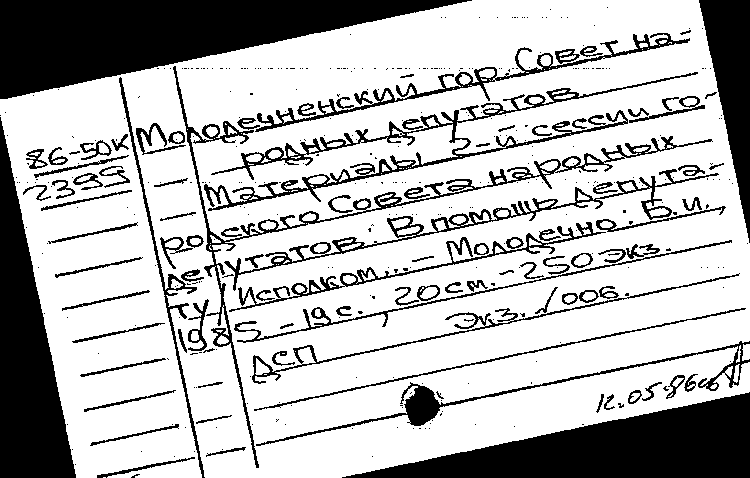 Молодечненский гор. Совет на-
родных депутатов.
86-50К
2399
Материалы 2-й сессии го-
родского Совета народных
депутатов: В помощь депута-
ту / Исполком... - Молодечно: Б.и.,
1985 - 19 с.; 20 см. - 250 экз.
ДСП Экз. √006.
12.05.86